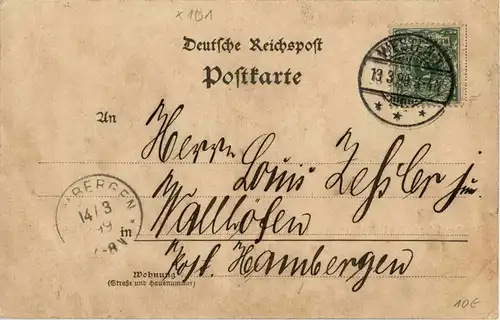 x 101
Deutsche Reichspost
Postkarte
13.3.99
An
Herrn Louis
jun.
BERGEN
14/3
99
in
Wallhöfen
Post. Hambergen
Wohnung
(Straße und Hausnummer)
10€